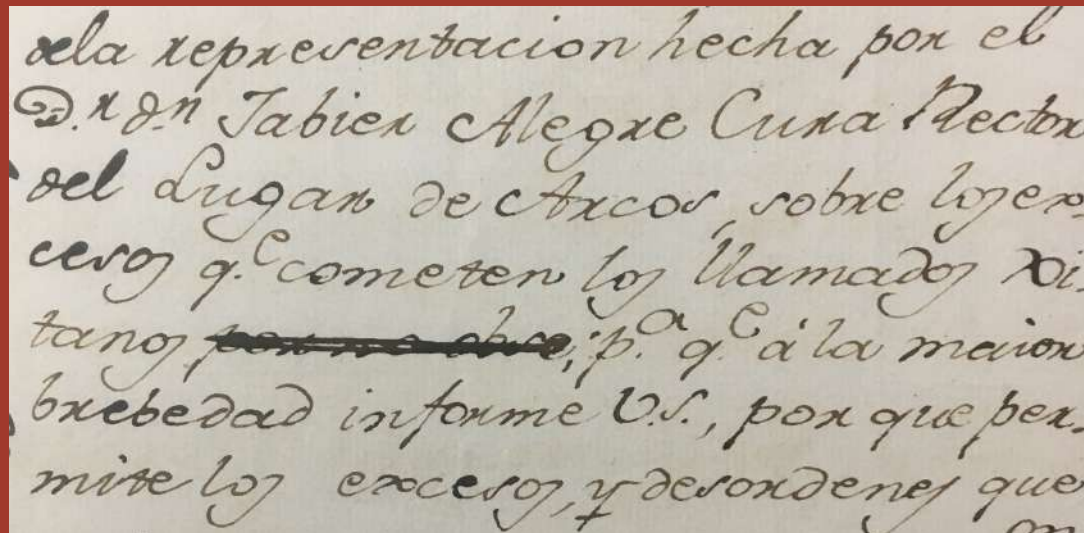 dela representacion hecha por el
D.r d.n Jabier Alegre Cura Rector
del Lugar de Arcos, sobre los ex-
cesos q.e cometen los llamados Xi-
tanos, ; p.a q.e á la maior
brebedad informe V.S., por que per-
mite los excesos, y desordenes que